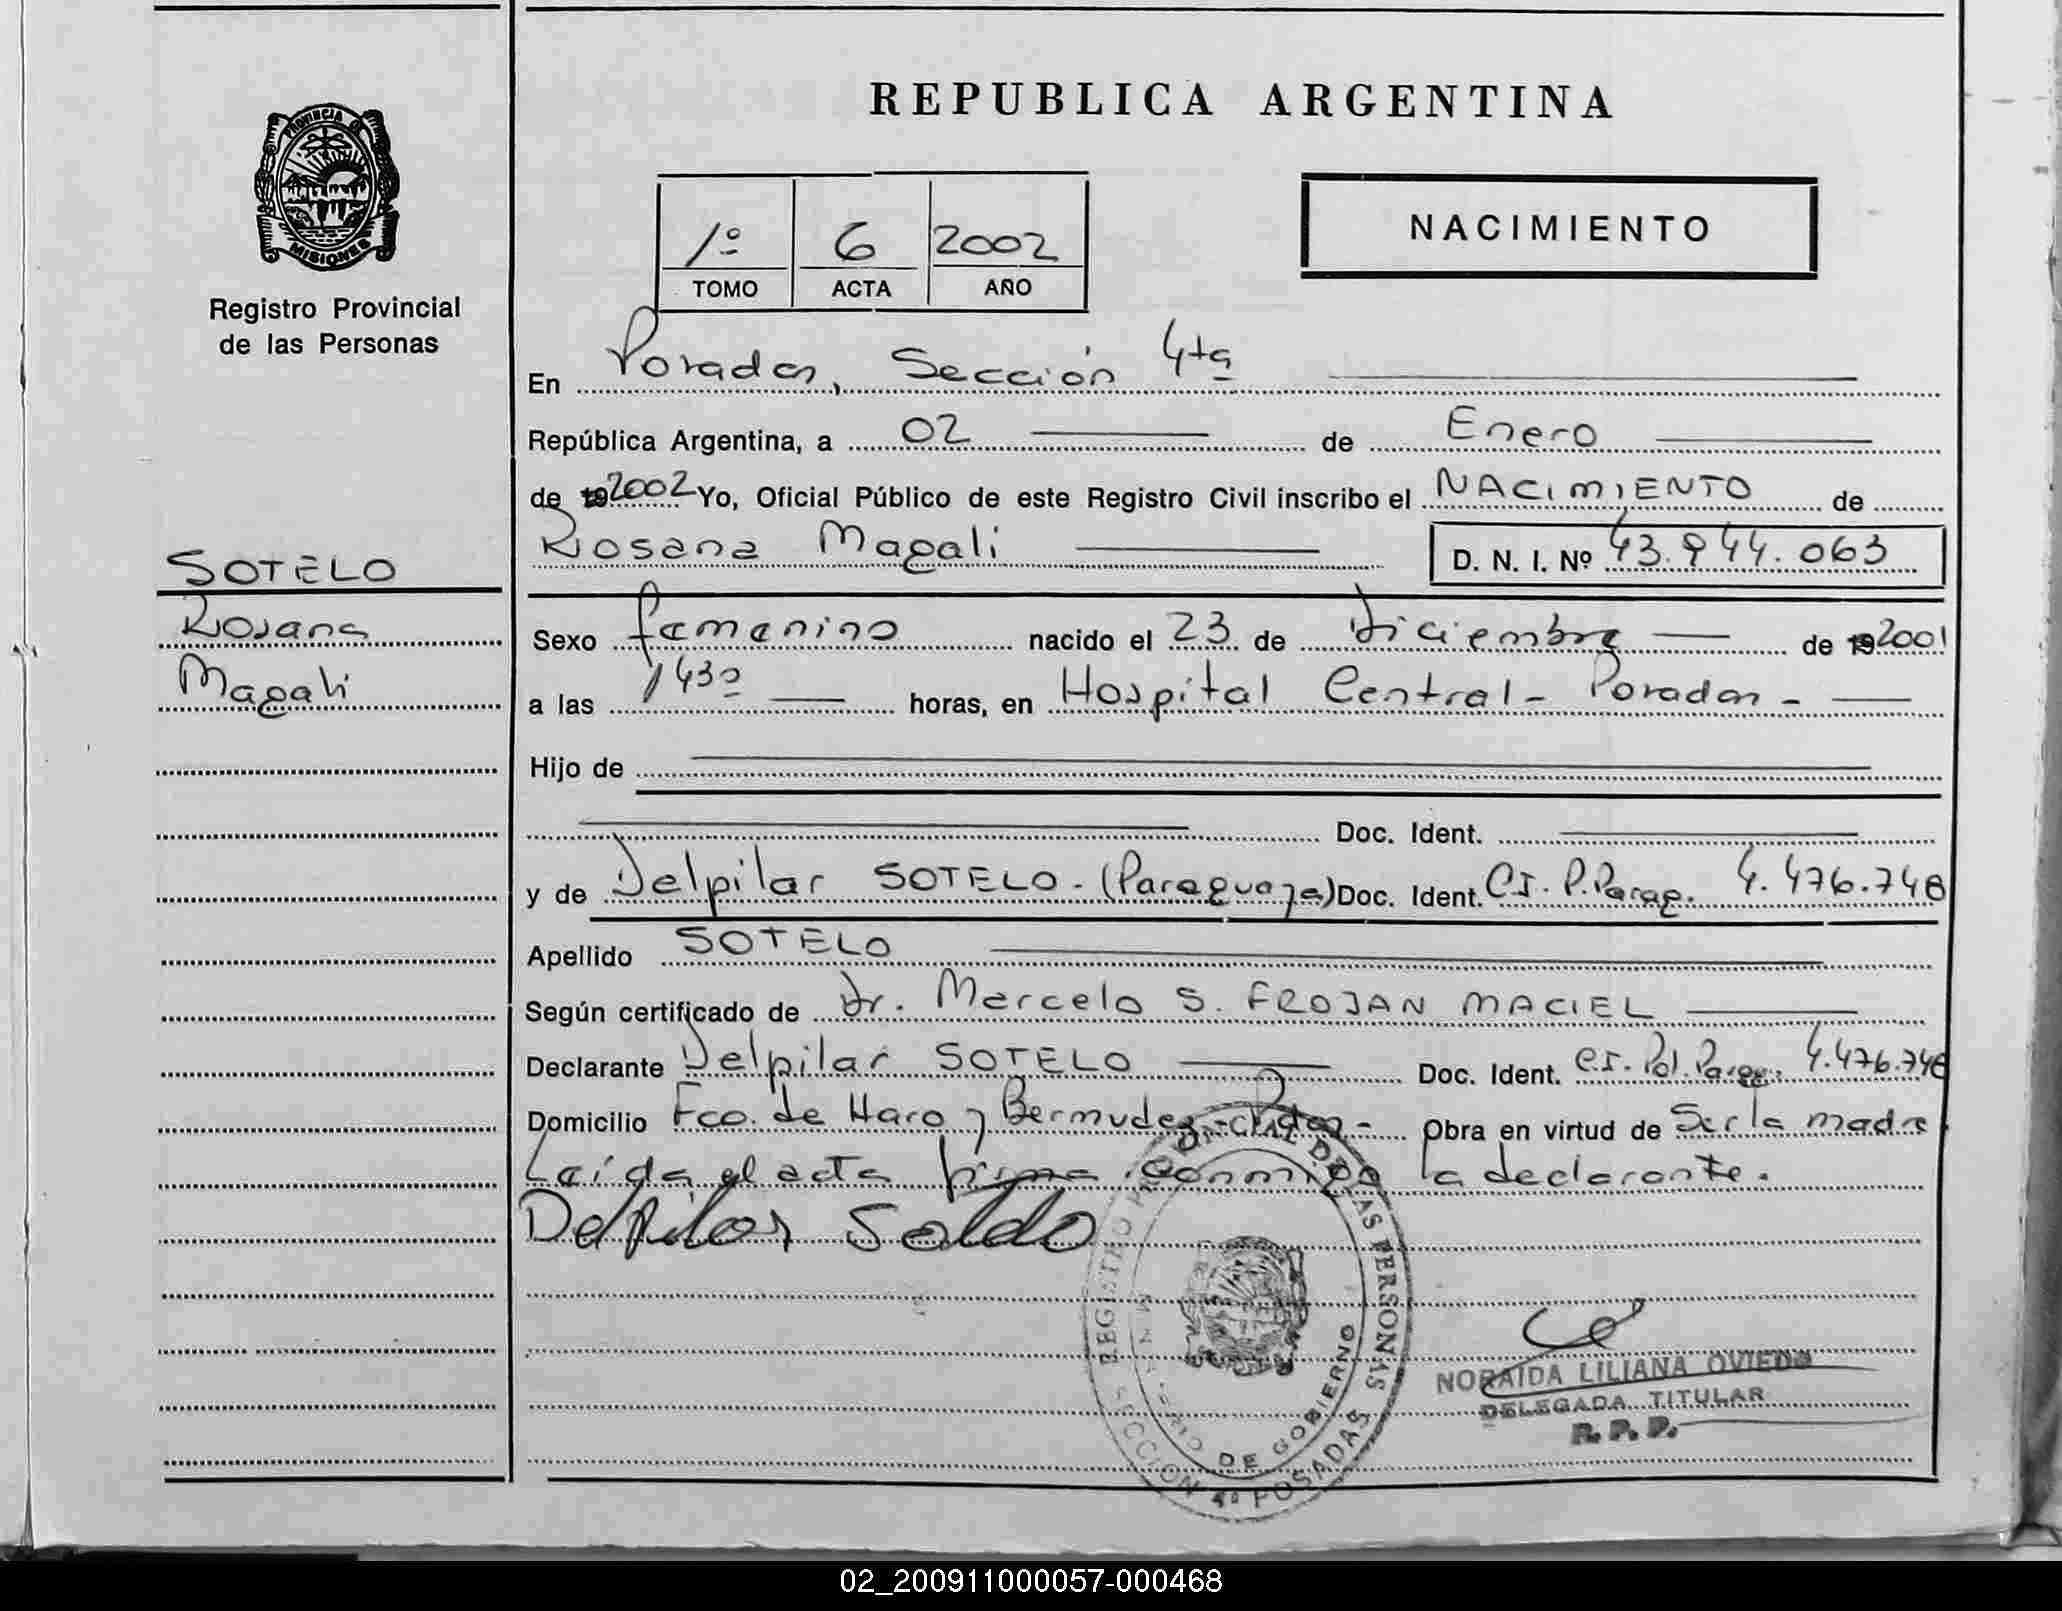 REPUBLICA ARGENTINA
PROVINCIA DE
MISIONES
Registro Provincial
de las Personas
NACIMIENTO
1º 6 2002
TOMO ACTA AÑO
En Posadas, Sección 4ta
República Argentina, a 02 de Enero
de 192002 Yo, Oficial Público de este Registro Civil inscribo el NACIMIENTO de
Rosana Magali D. N. I. Nº 43.944.063
SOTELO
Rosana
Magali
Sexo femenino nacido el 23 de Diciembre de 192001
a las 1430 horas, en Hospital Central - Posadas -
Hijo de
Doc. Ident.
y de Delpilar SOTELO. (Paraguaya) Doc. Ident. C.I. P. Parag. 4.476.748
Apellido SOTELO
Según certificado de Dr. Marcelo S. FROJAN MACIEL
Declarante Delpilar SOTELO Doc. Ident. C.I. Pol. Parag. 4.476.748
Domicilio Fco. de Haro y Bermudez - Pdas - Obra en virtud de Ser la madre
Leída el acta firma conmigo la declarante.
Delpilar Sotelo
REGISTRO DE LAS PERSONAS
DE GOBIERNO
SECCION 4ª POSADAS
NORAIDA LILIANA OVIEDO
DELEGADA TITULAR
R. P. P.
02_200911000057-000468